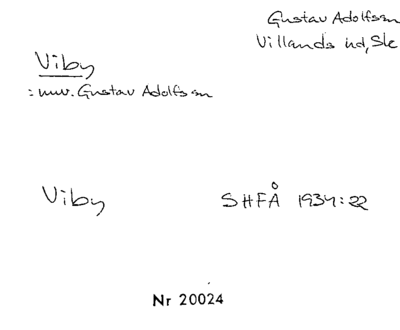 Gustav Adolfs sn
Villands hd, Ske
Viby
: nuv. Gustav Adolfs sn
Viby SHFÅ 1934:22
Nr 20024